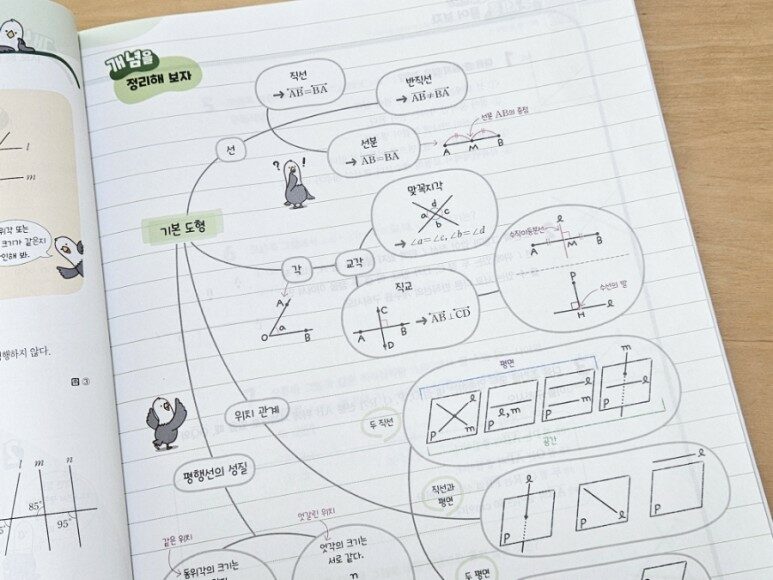 개념을
정리해 보자
직선
→ AB=BA
반직선
→ AB≠BA
선
선분
→ AB=BA
→
선분 AB의 중점
A M B
? !
맞꼭지각
a d c b
→ ∠a=∠c, ∠b=∠d
기본 도형
각
교각
A
O a B
직교
C
A B
D
→ AB⊥CD
수직이등분선
l
A M B
P
수선의 발
H l
l
m
위각 또는
크기가 같은지
인해 봐.
행하지 않다.
답 ③
위치 관계
두 직선
평면
공간
P l m
P l, m
P l m
P l m
평행선의 성질
직선과
평면
P l
P l
P l
l m n
85°
95°
같은 위치
엇갈린 위치
동위각의 크기는
엇각의 크기는
서로 같다.
n
두 평면